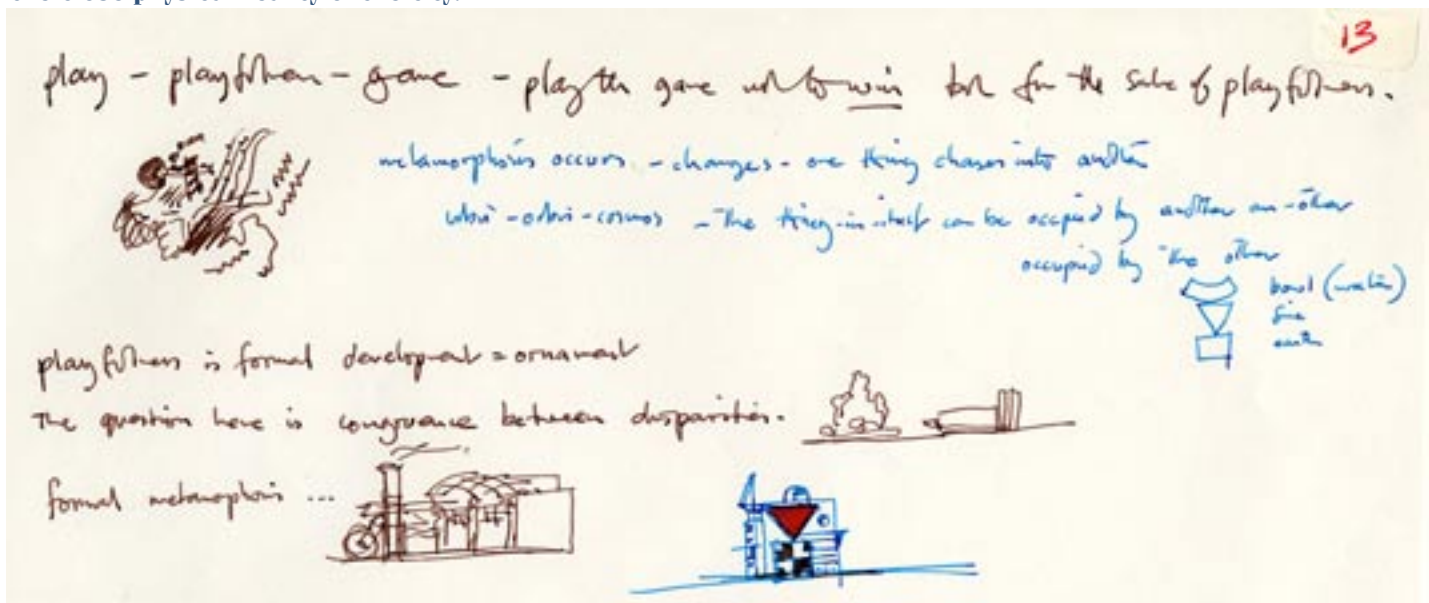 13
play - playfulness - game - play the game not to win but for the sake of playfulness.
metamorphosis occurs - changes - one thing changes into another
urbi - orbi - cosmos - The thing-in-itself can be occupied by another an-other
occupied by "the other
bowl (water)
fire
earth
playfulness is formal development = ornament
The question here is congruence between disparities.
formal metamorphosis ...